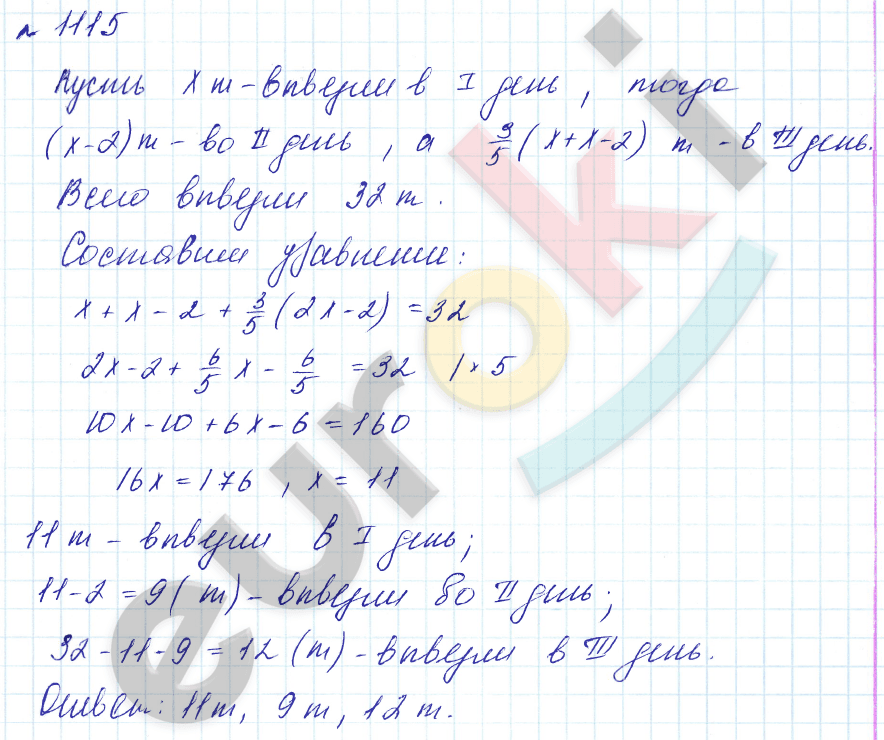 № 1115
Пусть x т - впвезли в I день, тогда
(x-2) т - во II день, а 3/5 (x+x-2) т - в III день.
Всего впвезли 32 т.
Составим уравнение:
x + x - 2 + 3/5 (2x-2) = 32
2x - 2 + 6/5 x - 6/5 = 32 /× 5
10x - 10 + 6x - 6 = 160
16x = 176, x = 11
11 т - впвезли в I день;
11-2 = 9 (т) - впвезли во II день;
32-11-9 = 12 (т) - впвезли в III день.
Ответ: 11 т, 9 т, 12 т.
euroki